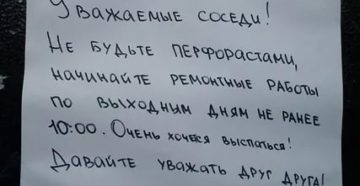 Уважаемые соседи!
Не будьте перфорастами,
начинайте ремонтные работы
по выходным дням не ранее
10:00. Очень хочется выспаться!
Давайте уважать друг друга!